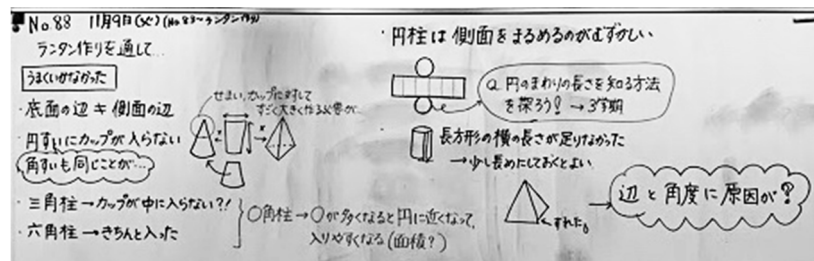 No.88 11月9日(火)(No.83〜ランタン作り)
ランタン作りを通して…
うまくいかなかった
・底面の辺≠側面の辺
・円すいにカップが入らない
角すいも同じことが…
・三角柱→カップが中に入らない?!
・六角柱→きちんと入った
せまい、カップに対して
すごく大きく作る必要が…
〇角柱→〇が多くなると円に近くなって、
入りやすくなる(面積?)
・円柱は側面をまるめるのがむずかしい
Q.円のまわりの長さを知る方法
を探ろう! →3学期
長方形の横の長さが足りなかった
→少し長めにしておくとよい
ずれた。
→辺と角度に原因が?